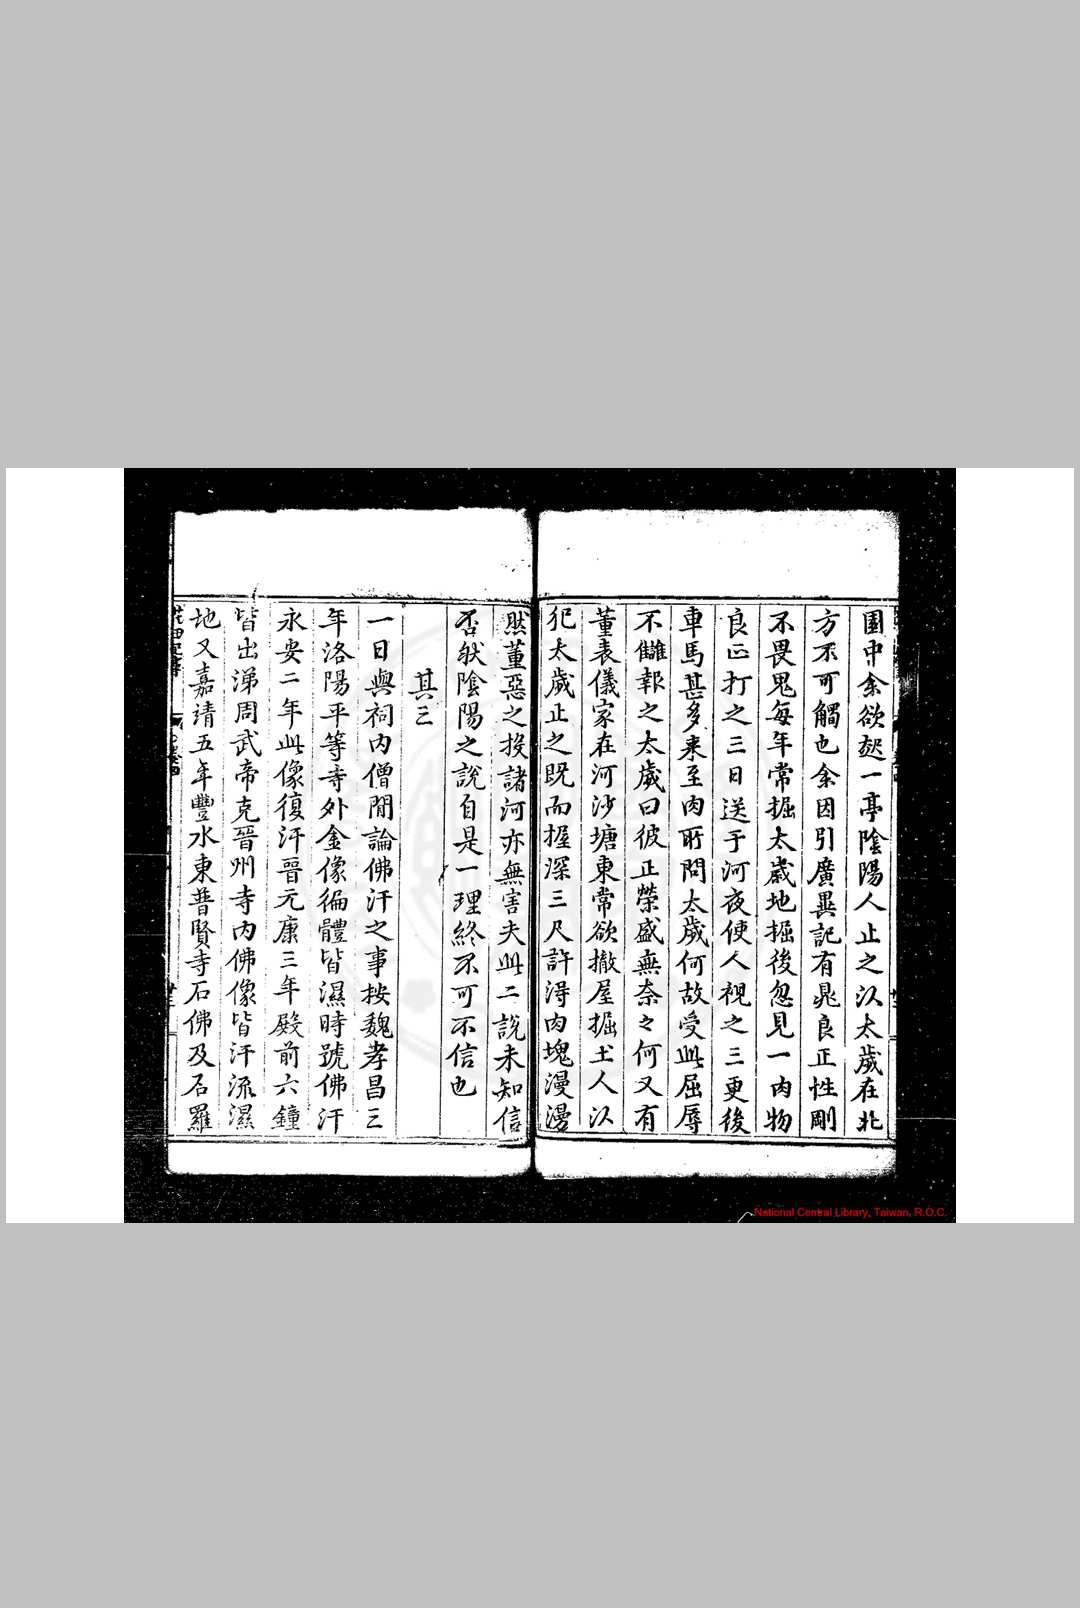 園中余欲起一亭陰陽人止之以太歲在北
方不可觸也余因引廣異記有晁良正性剛
不畏鬼每年常掘太歲地掘後忽見一肉物
良正打之三日送于河夜使人視之三更後
車馬甚多來至肉所問太歲何故受此屈辱
不讎報之太歲曰彼正榮盛無奈々何又有
董表儀家在河沙塘東常欲撤屋掘土人以
犯太歲止之既而握深三尺許淂肉塊漫漫
然董惡之投諸河亦無害夫此二說未知信
否然陰陽之說自是一理終不可不信也
其三
一日與祠内僧閒論佛汗之事按魏孝昌三
年洛陽平等寺外金像徧體皆濕時號佛汗
永安二年此像復汗晉元康三年殿前六鐘
皆出涕周武帝克晉州寺内佛像皆汗流濕
地又嘉靖五年豐水東普賢寺石佛及石羅
卷四
廿三
National Central Library, Taiwan, R.O.C.